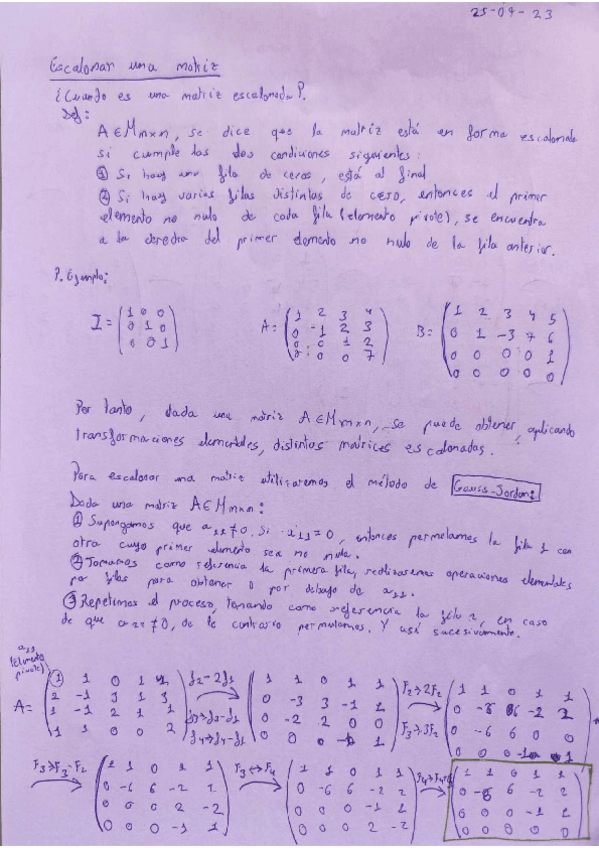 25-04-23
Escalonar una matriz
¿Cuando es una matriz escalonada?.
Def:
A ∈ Mmxn, se dice que la matriz está en forma escalonada
si cumple las dos condiciones siguientes:
① Si hay una fila de ceros, está al final
② Si hay varias filas distintas de cero, entonces el primer
elemento no nulo de cada fila (elemento pivote), se encuentra
a la derecha del primer elemento no nulo de la fila anterior.
P. Ejemplo:
I = (1 0 0 A = (1 2 3 4 B = (1 2 3 4 5
0 1 0 0 -1 2 3 0 1 -3 7 6
0 0 1) 0 0 1 2 0 0 0 0 1
0 0 0 7) 0 0 0 0 0)
Por tanto, dada una matriz A ∈ Mmxn, se puede obtener, aplicando
transformaciones elementales, distintas matrices escalonadas.
Para escalonar una matriz utilizaremos el método de Gauss-Jordan:
Dada una matriz A ∈ Mmxn:
① Supongamos que a11 ≠ 0, si a11 = 0, entonces permutamos la fila 1 con
otra cuyo primer elemento sea no nulo.
② Tomamos como referencia la primera fila, realizaremos operaciones elementales
por filas para obtener 0 por debajo de a11.
③ Repetimos el proceso, tomando como referencia la fila 2, en caso
de que a22 ≠ 0, de lo contrario permutamos. Y así sucesivamente.
a11
(elemento
pivote)
A = (1 1 0 1 1 f2-2f1 (1 1 0 1 1 F2→2F2 (1 1 0 1 1
2 -1 3 1 3 0 -3 3 -1 1 0 -6 6 -2 2
1 -1 2 1 1 f3→f3-f1 0 -2 2 0 0 F3→3F3 0 -6 6 0 0
1 1 0 0 2) f4→f4-f1 0 0 0 -1 1) 0 0 0 -1 1)
F3→F3-F2 (1 1 0 1 1 F3↔F4 (1 1 0 1 1 (1 1 0 1 1
0 -6 6 -2 2 0 -6 6 -2 2 0 -6 6 -2 2
0 0 0 2 -2 0 0 0 -1 1 0 0 0 -1 1
0 0 0 -1 1) 0 0 0 2 -2) 0 0 0 0 0)